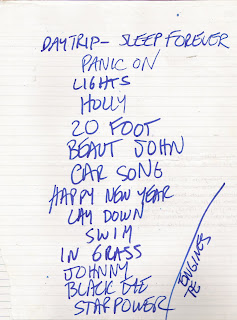 DAYTRIP - SLEEP FOREVER
PANIC ON
LIGHTS
HOLLY
20 FOOT
BEAUT JOHN
CAR SONG
HAPPY NEW YEAR
LAY DOWN
SWIM
IN GRASS
JOHNNY
BLACK EYE
STARPOWER
ENGINES